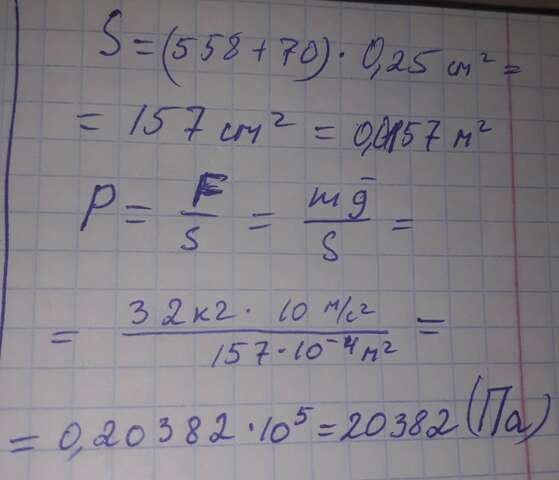 S = (558 + 70) · 0,25 см² =
= 157 см² = 0,0157 м²
P = F/S = mg/S =
= 32 кг · 10 м/с² / 157 · 10⁻⁴ м² =
= 0,20382 · 10⁵ = 20382 (Па)